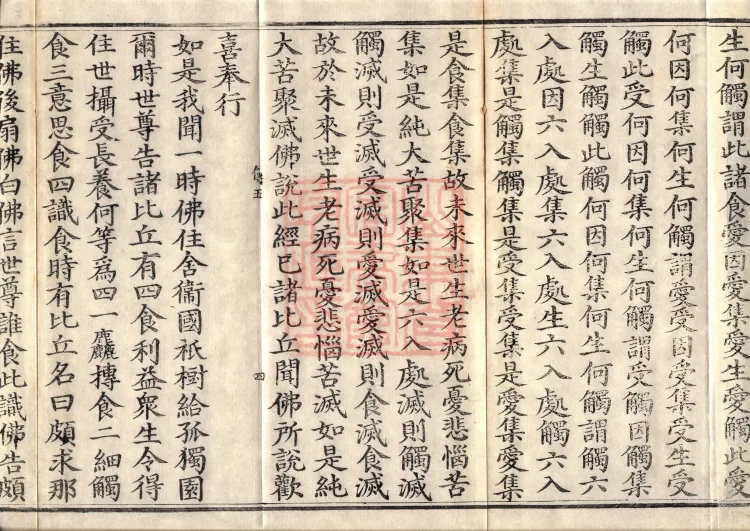 生何觸謂此諸食愛因愛集愛生愛觸此愛
何因何集何生何觸謂愛受因受集受生受
觸此受何因何集何生何觸謂受觸因觸集
觸生觸觸此觸何因何集何生何觸謂觸六
入處因六入處集六入處生六入處觸六入
處集是觸集觸集是受集受集是愛集愛集
是食集食集故未來世生老病死憂悲惱苦
集如是純大苦聚集如是六入處滅則觸滅
觸滅則受滅受滅則愛滅愛滅則食滅食滅
故於未來世生老病死憂悲惱苦滅如是純
大苦聚滅佛說此經已諸比丘聞佛所說歡
喜奉行
如是我聞一時佛住舍衞國祇樹給孤獨園
爾時世尊告諸比丘有四食利益衆生令得
住世攝受長養何等爲四一麤摶食二細觸
食三意思食四識食時有比丘名曰頗求那
住佛後扇佛白佛言世尊誰食此識佛告頗
五
四